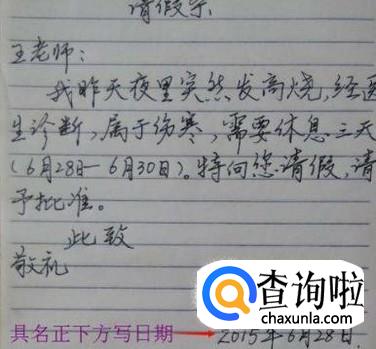 请假条
王老师:
我昨天夜里突然发高烧,经医
生诊断,属于伤寒,需要休息三天
(6月28日-6月30日)。特向您请假,请
予批准。
此致
敬礼
查询啦
chaxunla.com
具名正下方写日期
2015年6月28日